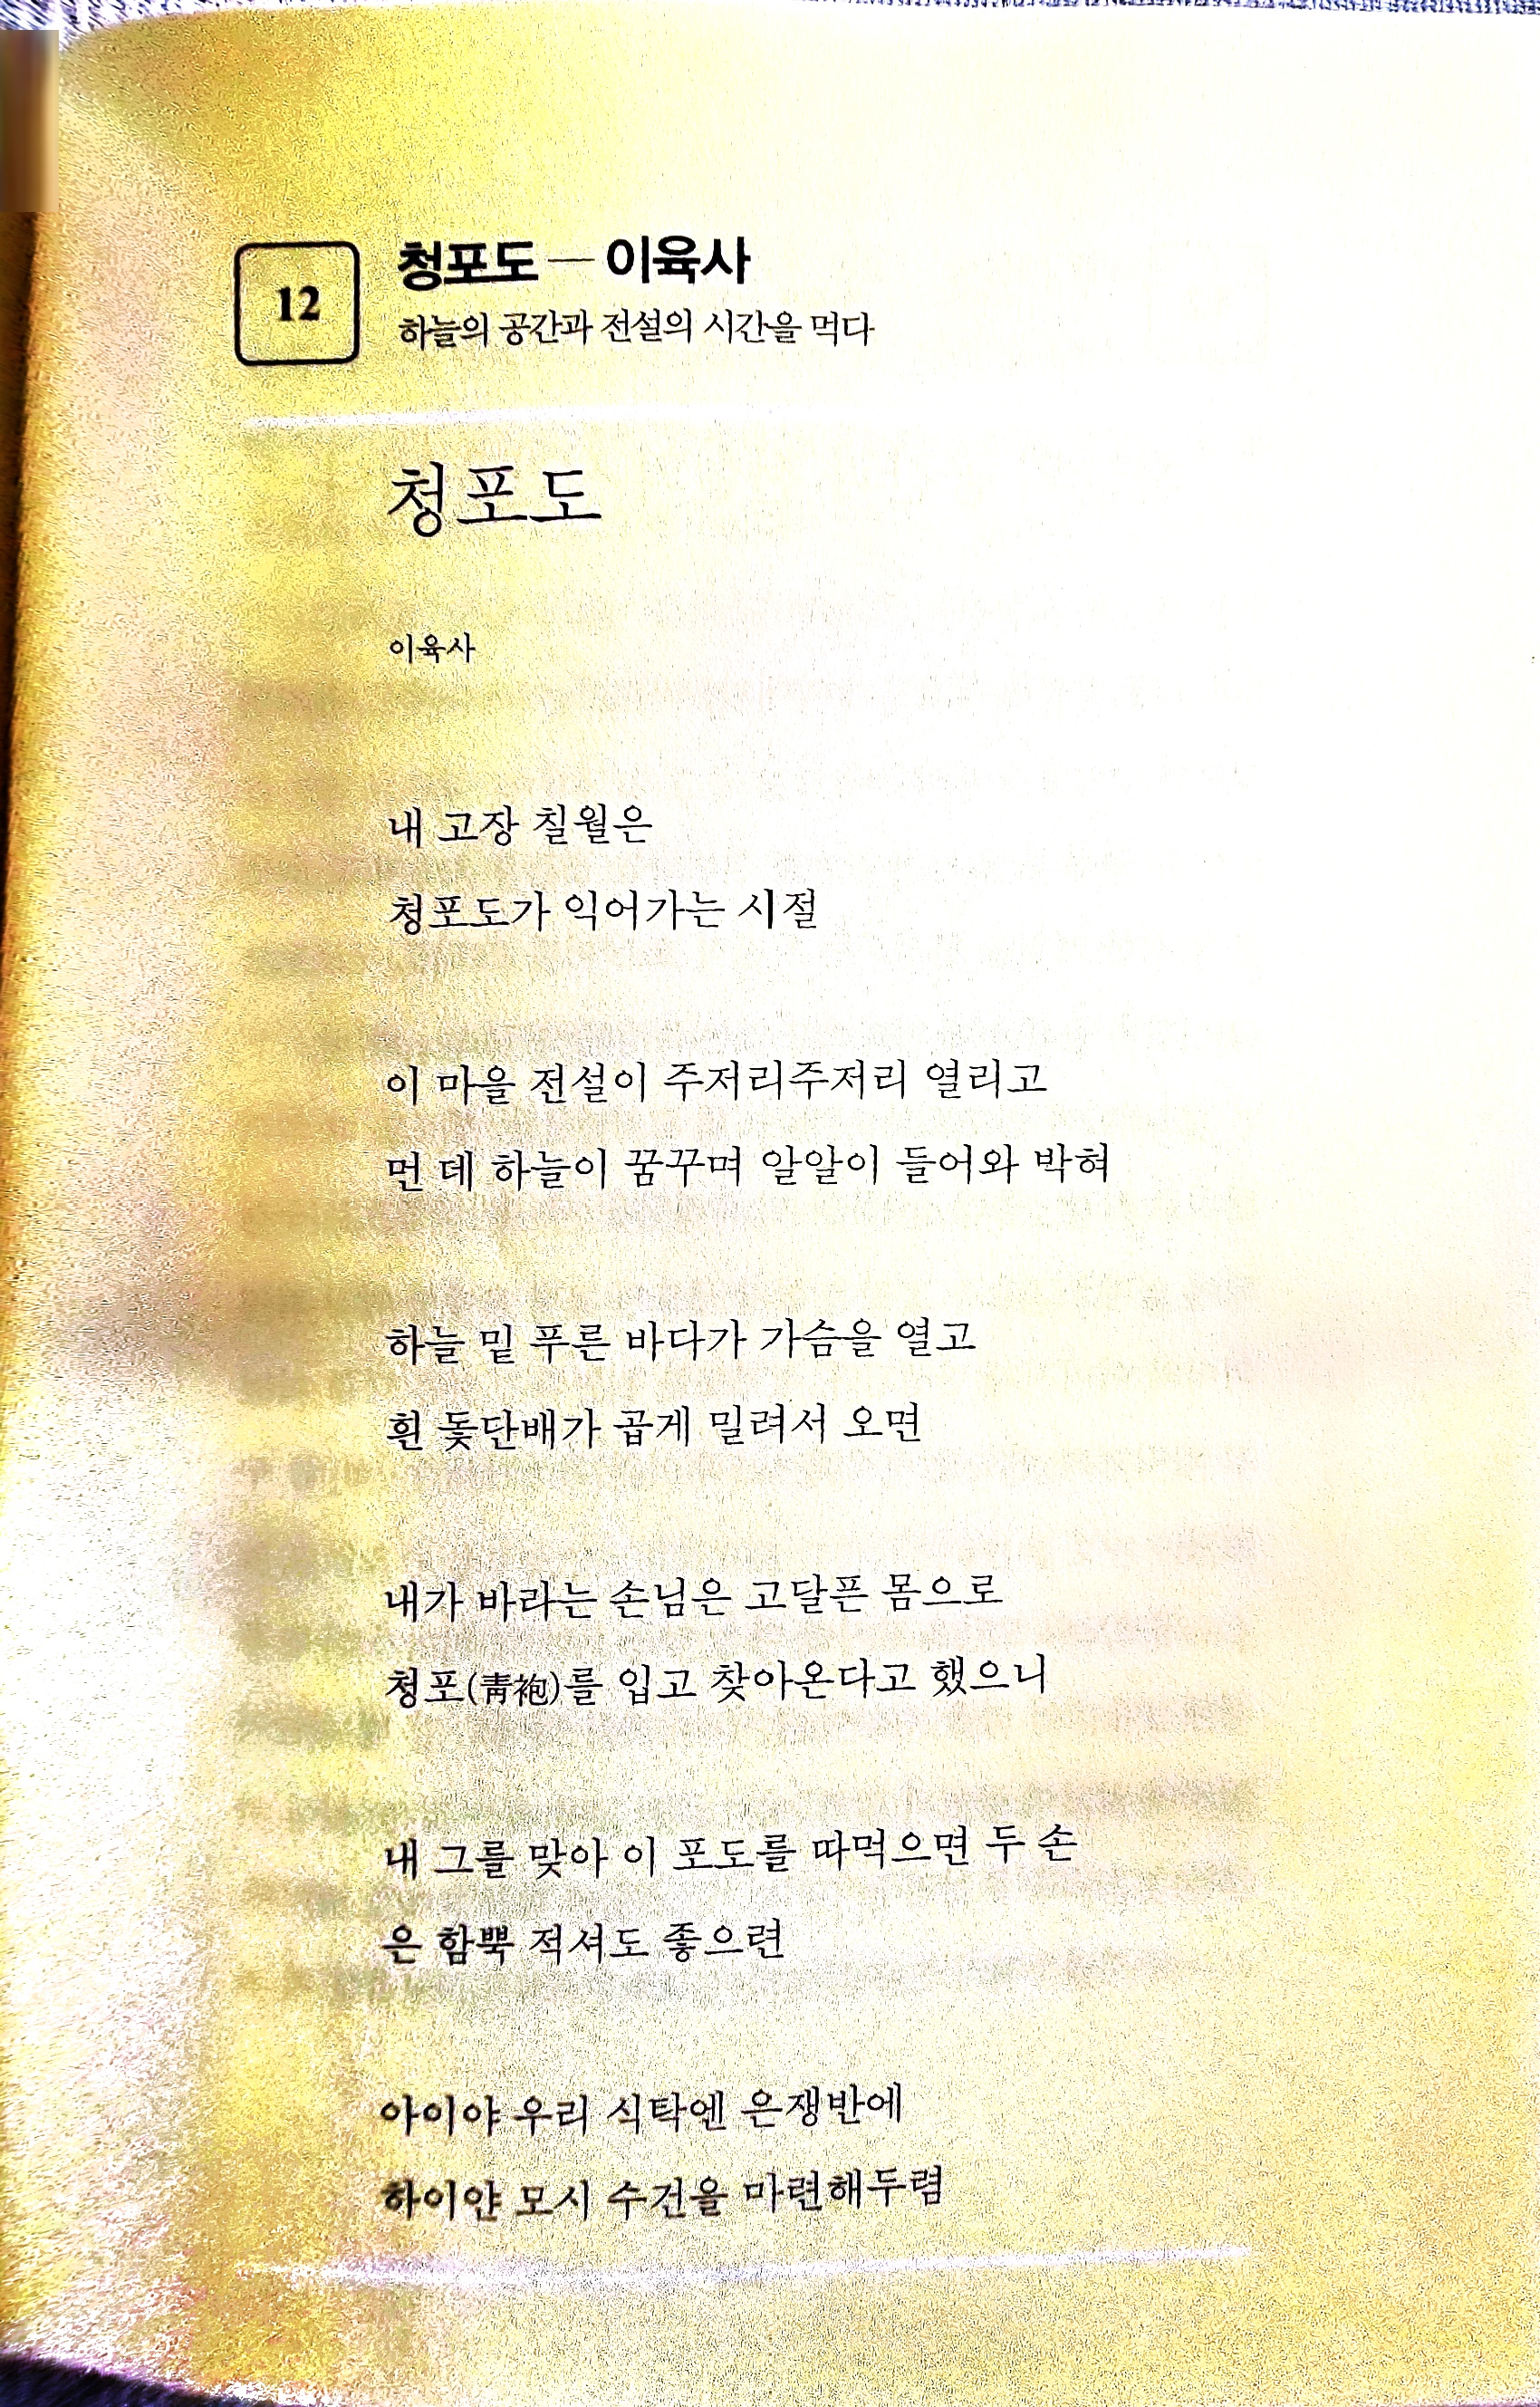 12
청포도 — 이육사
하늘의 공간과 전설의 시간을 먹다
청포도
이육사
내 고장 칠월은
청포도가 익어가는 시절
이 마을 전설이 주저리주저리 열리고
먼 데 하늘이 꿈꾸며 알알이 들어와 박혀
하늘 밑 푸른 바다가 가슴을 열고
흰 돛단배가 곱게 밀려서 오면
내가 바라는 손님은 고달픈 몸으로
청포(靑袍)를 입고 찾아온다고 했으니
내 그를 맞아 이 포도를 따먹으면 두 손
은 함뿍 적셔도 좋으련
아이야 우리 식탁엔 은쟁반에
하이얀 모시 수건을 마련해두렴